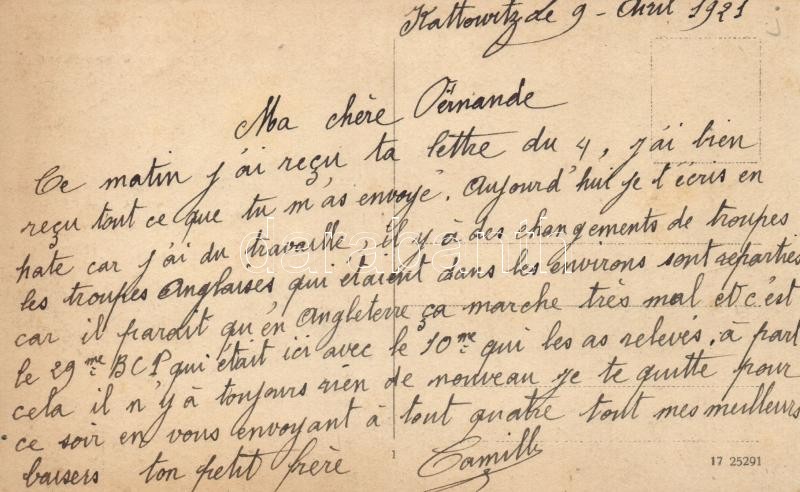 Kattowitz le 9 - Avril 1921
Ma chère Fernande
Ce matin j'ai reçu ta lettre du 4, j'ai bien
reçu tout ce que tu m'as envoyé. Aujourd'hui je t'écris en
hate car j'ai du travaille il y à des changements de troupes
les troupes Anglaises qui étaient dans les environs sont reparties
car il parait qu'en Angleterre ça marche très mal et c'est
le 29me BCP qui était ici avec le 10me qui les as relevés. à part
cela il n'y à toujours rien de nouveau je te quitte pour
ce soir en vous envoyant à tout quatre tout mes meilleurs
baisers ton petit frère Camille
1 17 25291
darabanth